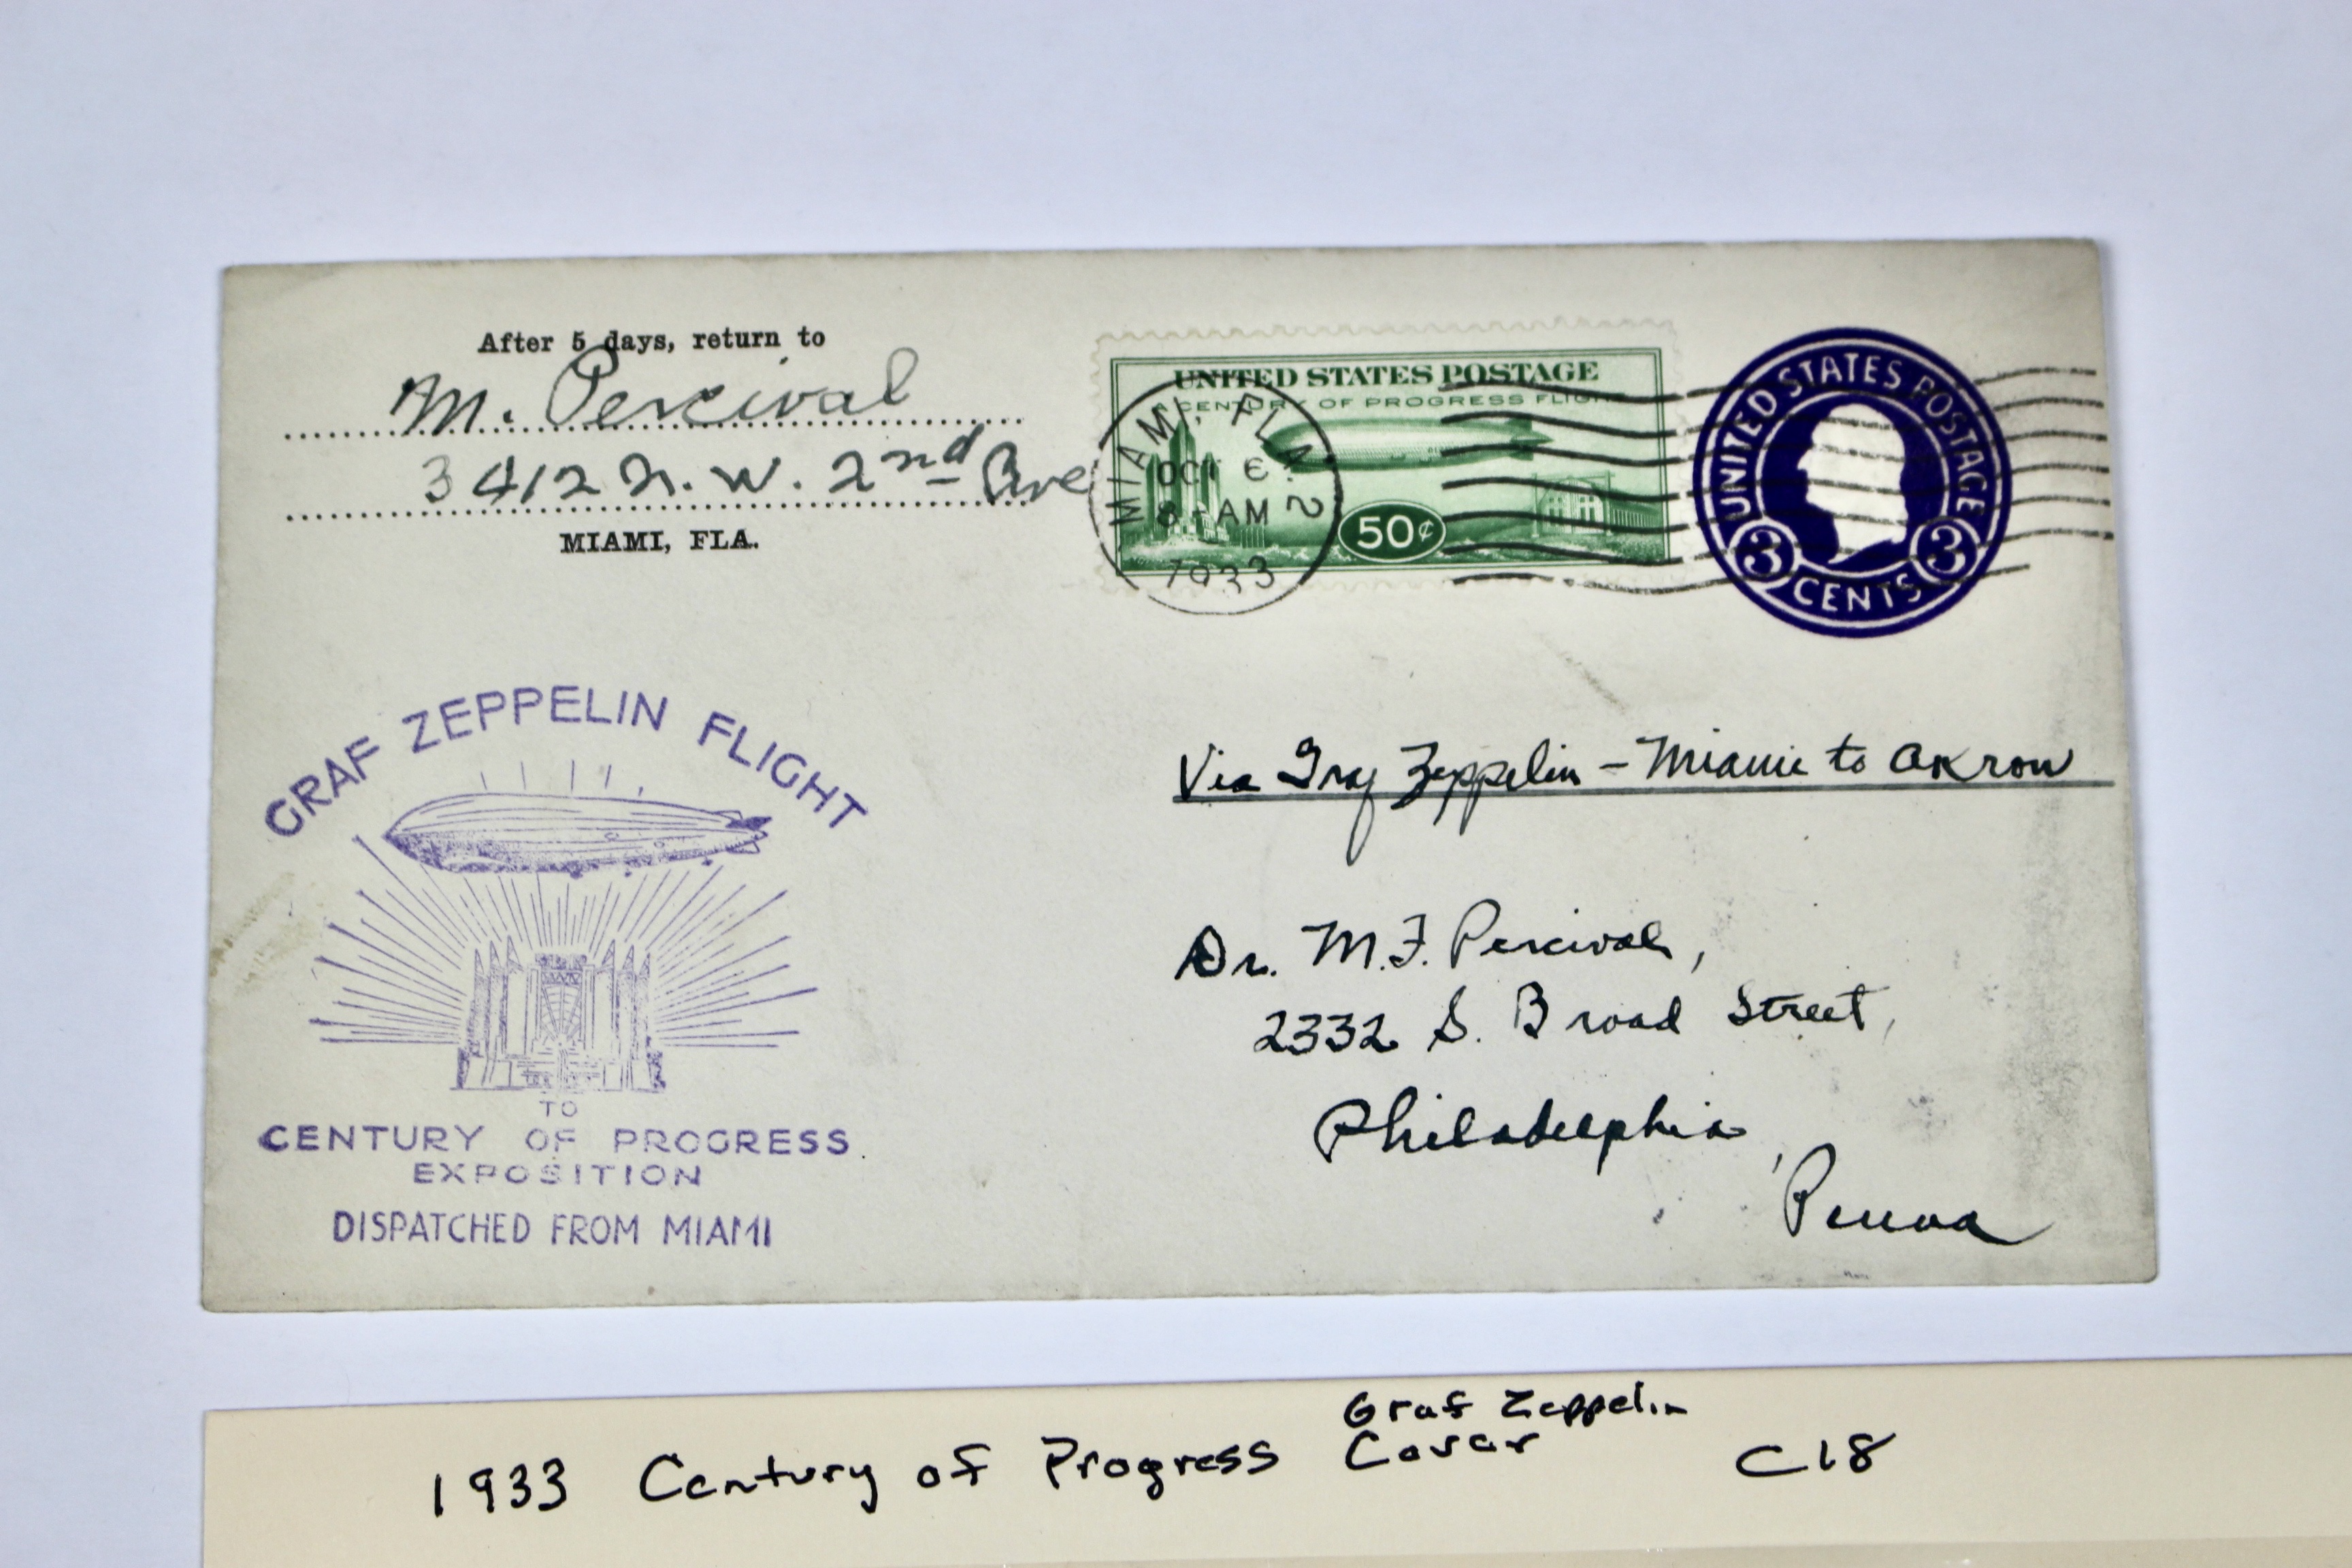 After 5 days, return to
M. Percival
3412 N. W. 2nd Ave
MIAMI, FLA.
UNITED STATES POSTAGE
CENTURY OF PROGRESS FLIGHT
50¢
MIAMI, FLA. 2
OCT 6
8 - AM
1933
UNITED STATES POSTAGE
3 CENTS 3
GRAF ZEPPELIN FLIGHT
TO
CENTURY OF PROGRESS
EXPOSITION
DISPATCHED FROM MIAMI
Via Graf Zeppelin - Miami to Akron
Dr. M.F. Percival,
2332 S. Broad Street,
Philadelphia,
Penna
1933 Century of Progress Graf Zeppelin Cover C18